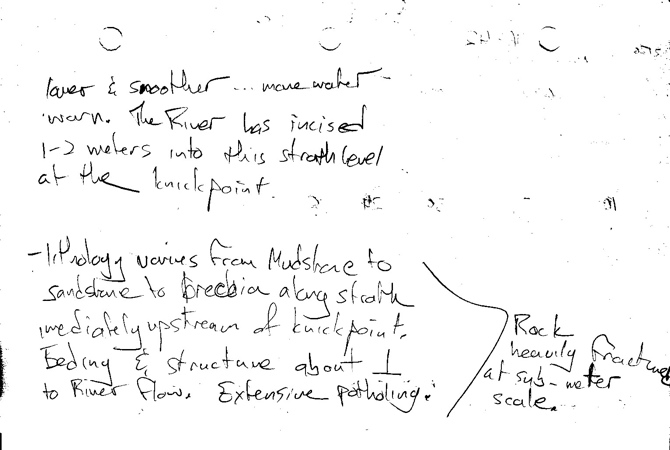 lower & smoother ... more water-
worn. The River has incised
1-2 meters into this strath level
at the knickpoint.
- lithology varies from Mudstone to
sandstone to breccia along strath
imediately upstream of knickpoint.
Beding & structure about ⊥
to River flow. Extensive potholing.
Rock
heavily fractured
at sub-meter
scale.